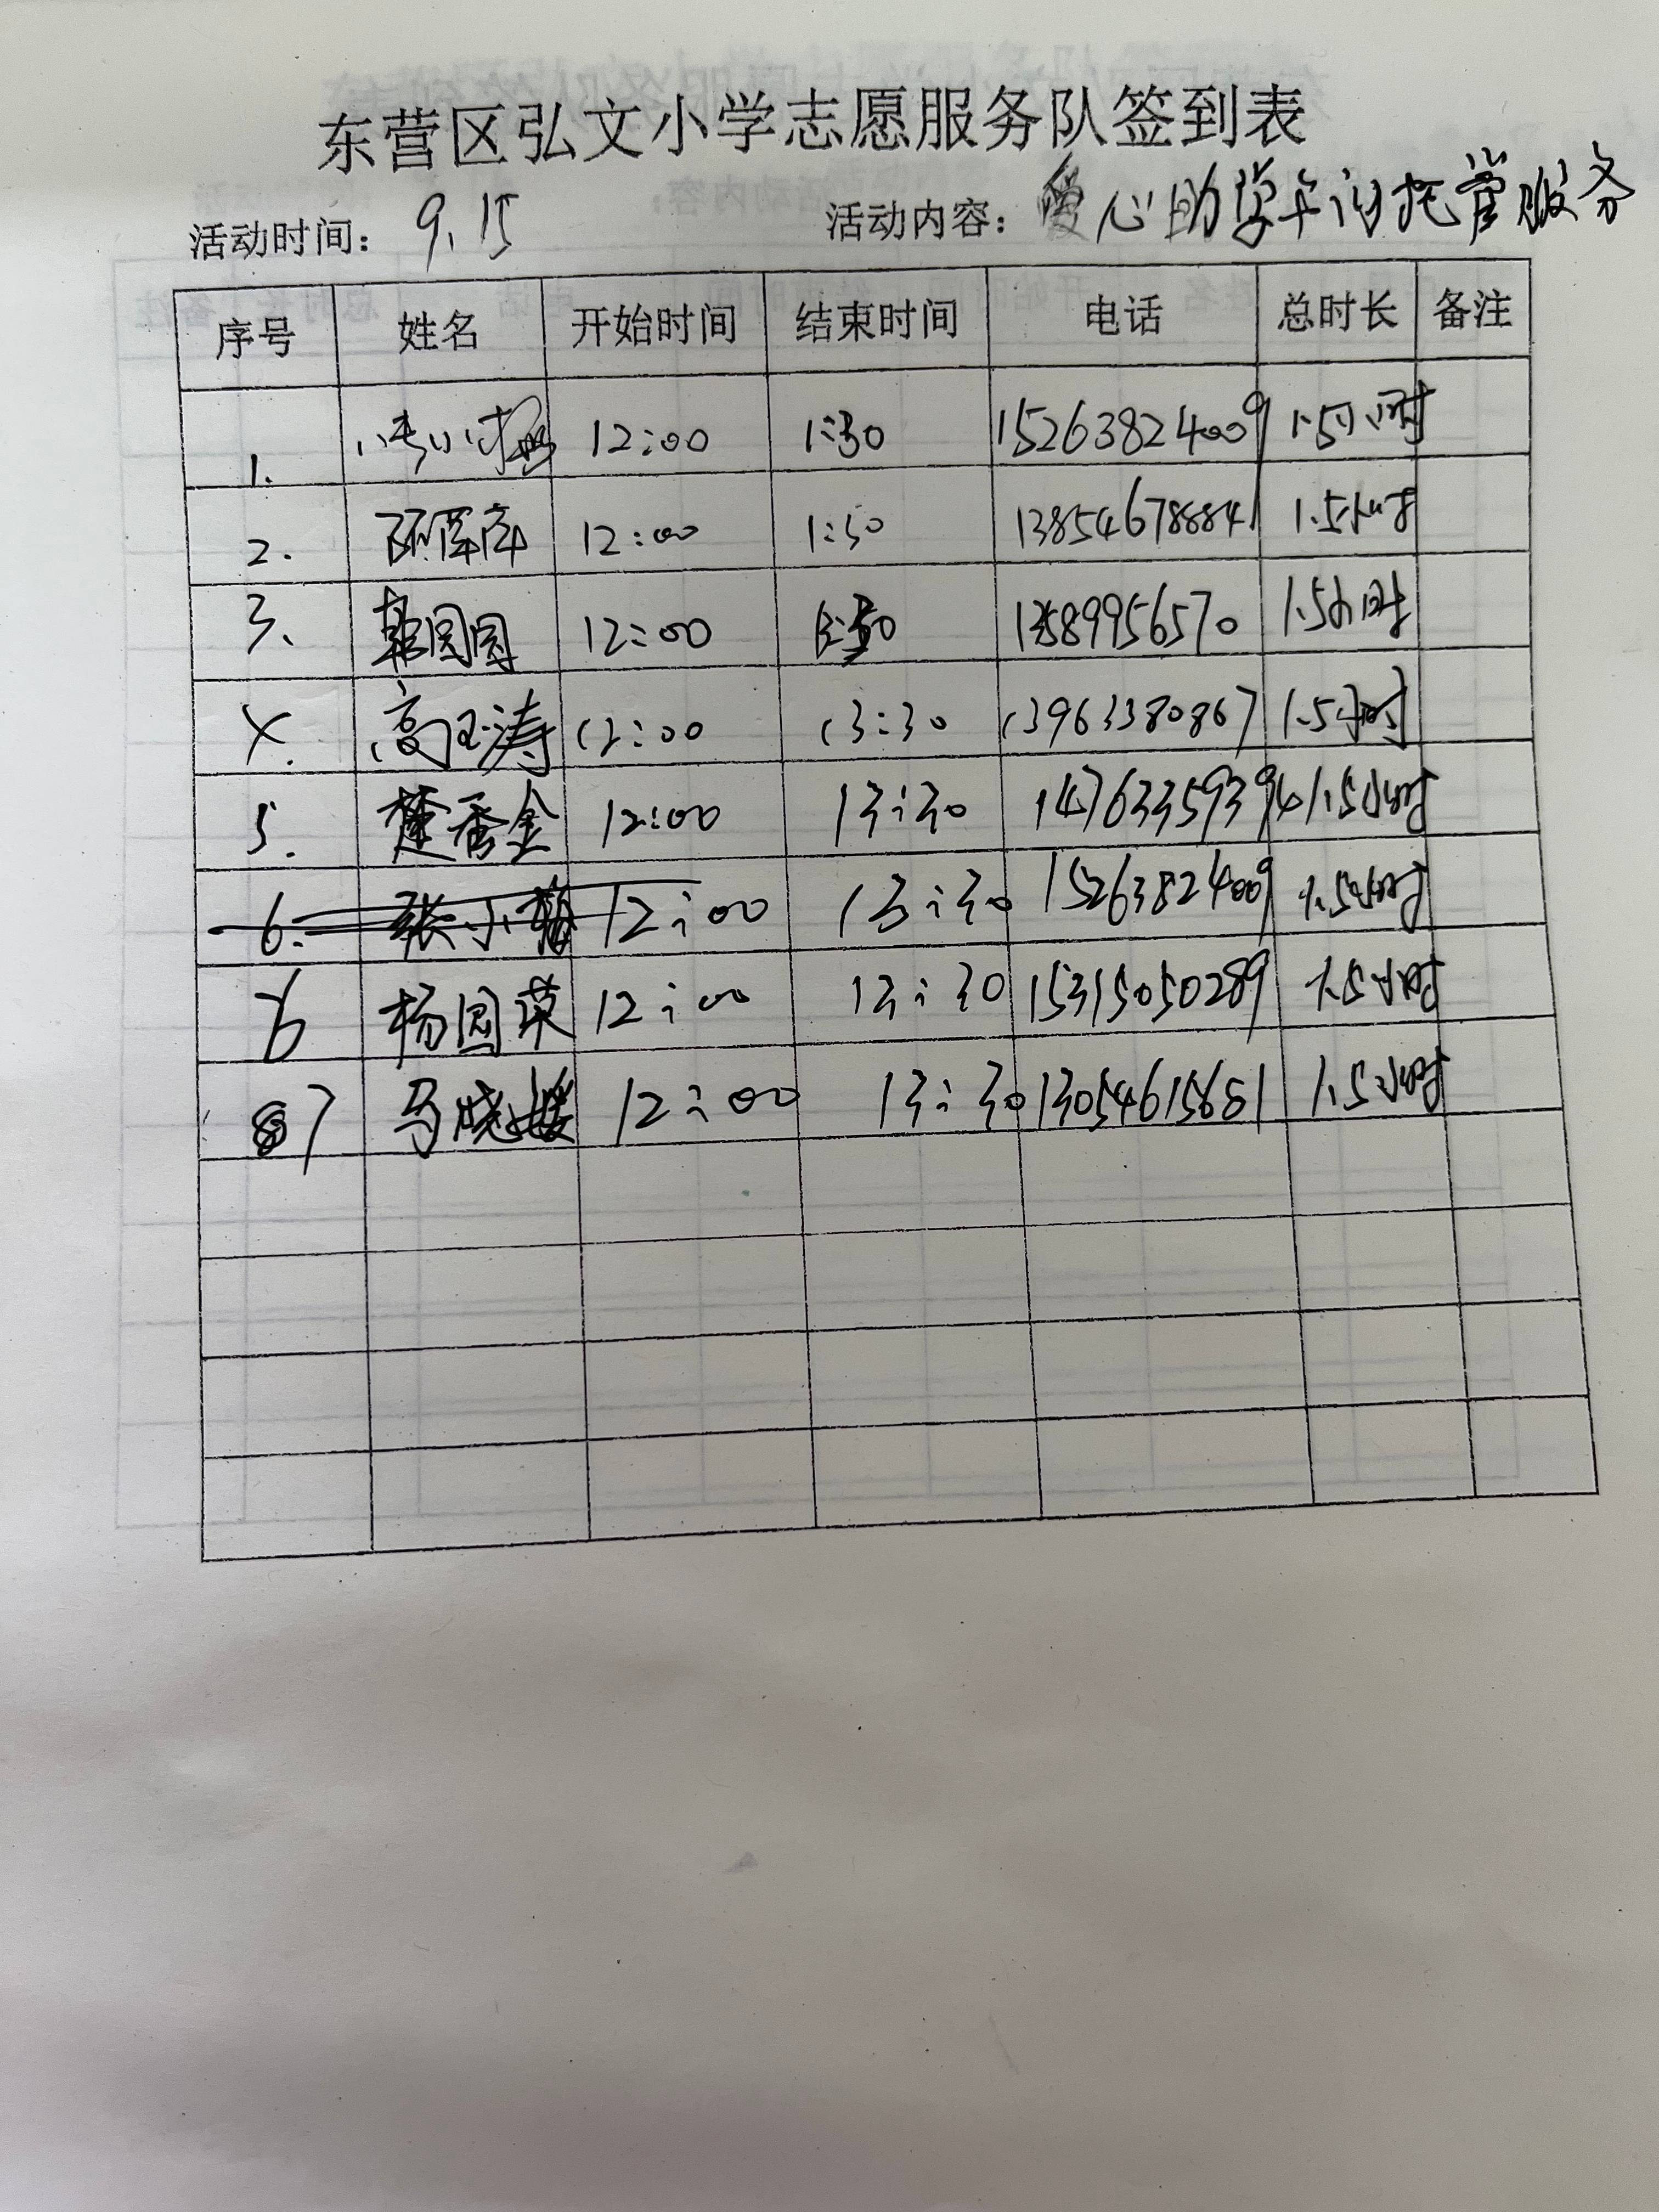 东营区弘文小学志愿服务队签到表
活动时间: 9.15 活动内容: 爱心助学午间托管服务
序号 姓名 开始时间 结束时间 电话 总时长 备注
1. 12:00 1:30 15263824009 1.5小时
2. 12:00 1:30 1.5小时
3. 韩園園 12:00 1.5小时
4. 高玉涛 12:00 13:30 13963380867 1.5小时
5. 楚香金 12:00 13:30 14763359394 1.5小时
6. 张小梅 12:00 13:30 15263824009 1.5小时
6 杨圆菓 12:00 13:30 15315050289 1.5小时
7 马晓媛 12:00 13:30 13054615681 1.5小时